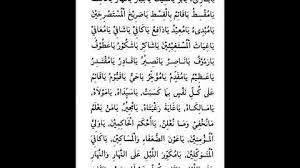 يَامُقْسِطُ يَاقَائِمُ بِالْقِسْطِ يَاصَرِيخَ الْمُسْتَصْرِخِينَ
يَامُبْدِئُ يَامُعِيدُ يَادَافِعُ يَاكَافِي يَاشَافِي يَامُعَافِي
يَاغِيَاثَ الْمُسْتَغِيثِينَ يَاشَاكِرُ يَاشَكُورُ يَاعَطُوفُ
يَارَءُوفُ يَانَاصِرُ يَانَصِيرُ يَاقَادِرُ يَامُقْتَدِرُ
يَاعَظِيمُ يَامُقَدِّمُ يَامُؤَخِّرُ يَاحَيُّ يَاقَيُّومُ يَاقَائِمُ
عَلَى كُلِّ نَفْسٍ بِمَا كَسَبَتْ، يَاسَيِّدَاهُ، يَامَوْلَاهُ،
يَامَالِكَاهُ، يَاغَايَةَ رَغْبَتَاهُ، يَامُجِيرُ، يَامَنْ يَعْلَمُ
مَانُخْفِي وَمَا نُعْلِنُ، يَاأَحْكَمَ الْحَاكِمِينَ، يَاوَلِيَّ
الْمُؤْمِنِينَ، يَاعَوْنَ الضُّعَفَاءِ وَالْمَسَاكِينِ، يَارَبَّ
الْمُتَوَكِّلِينَ، يَامُكَوِّرَ اللَّيْلِ عَلَى النَّهَارِ وَالنَّهَارِ